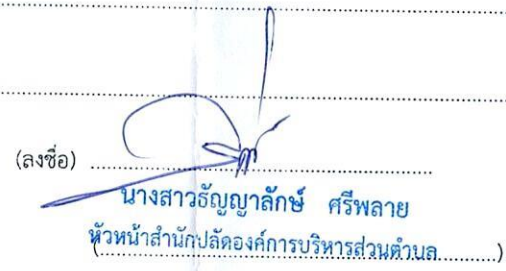 (ลงชื่อ)
นางสาวธัญญาลักษ์ ศรีพลาย
หัวหน้าสำนักปลัดองค์การบริหารส่วนตำบล
(.................................................)